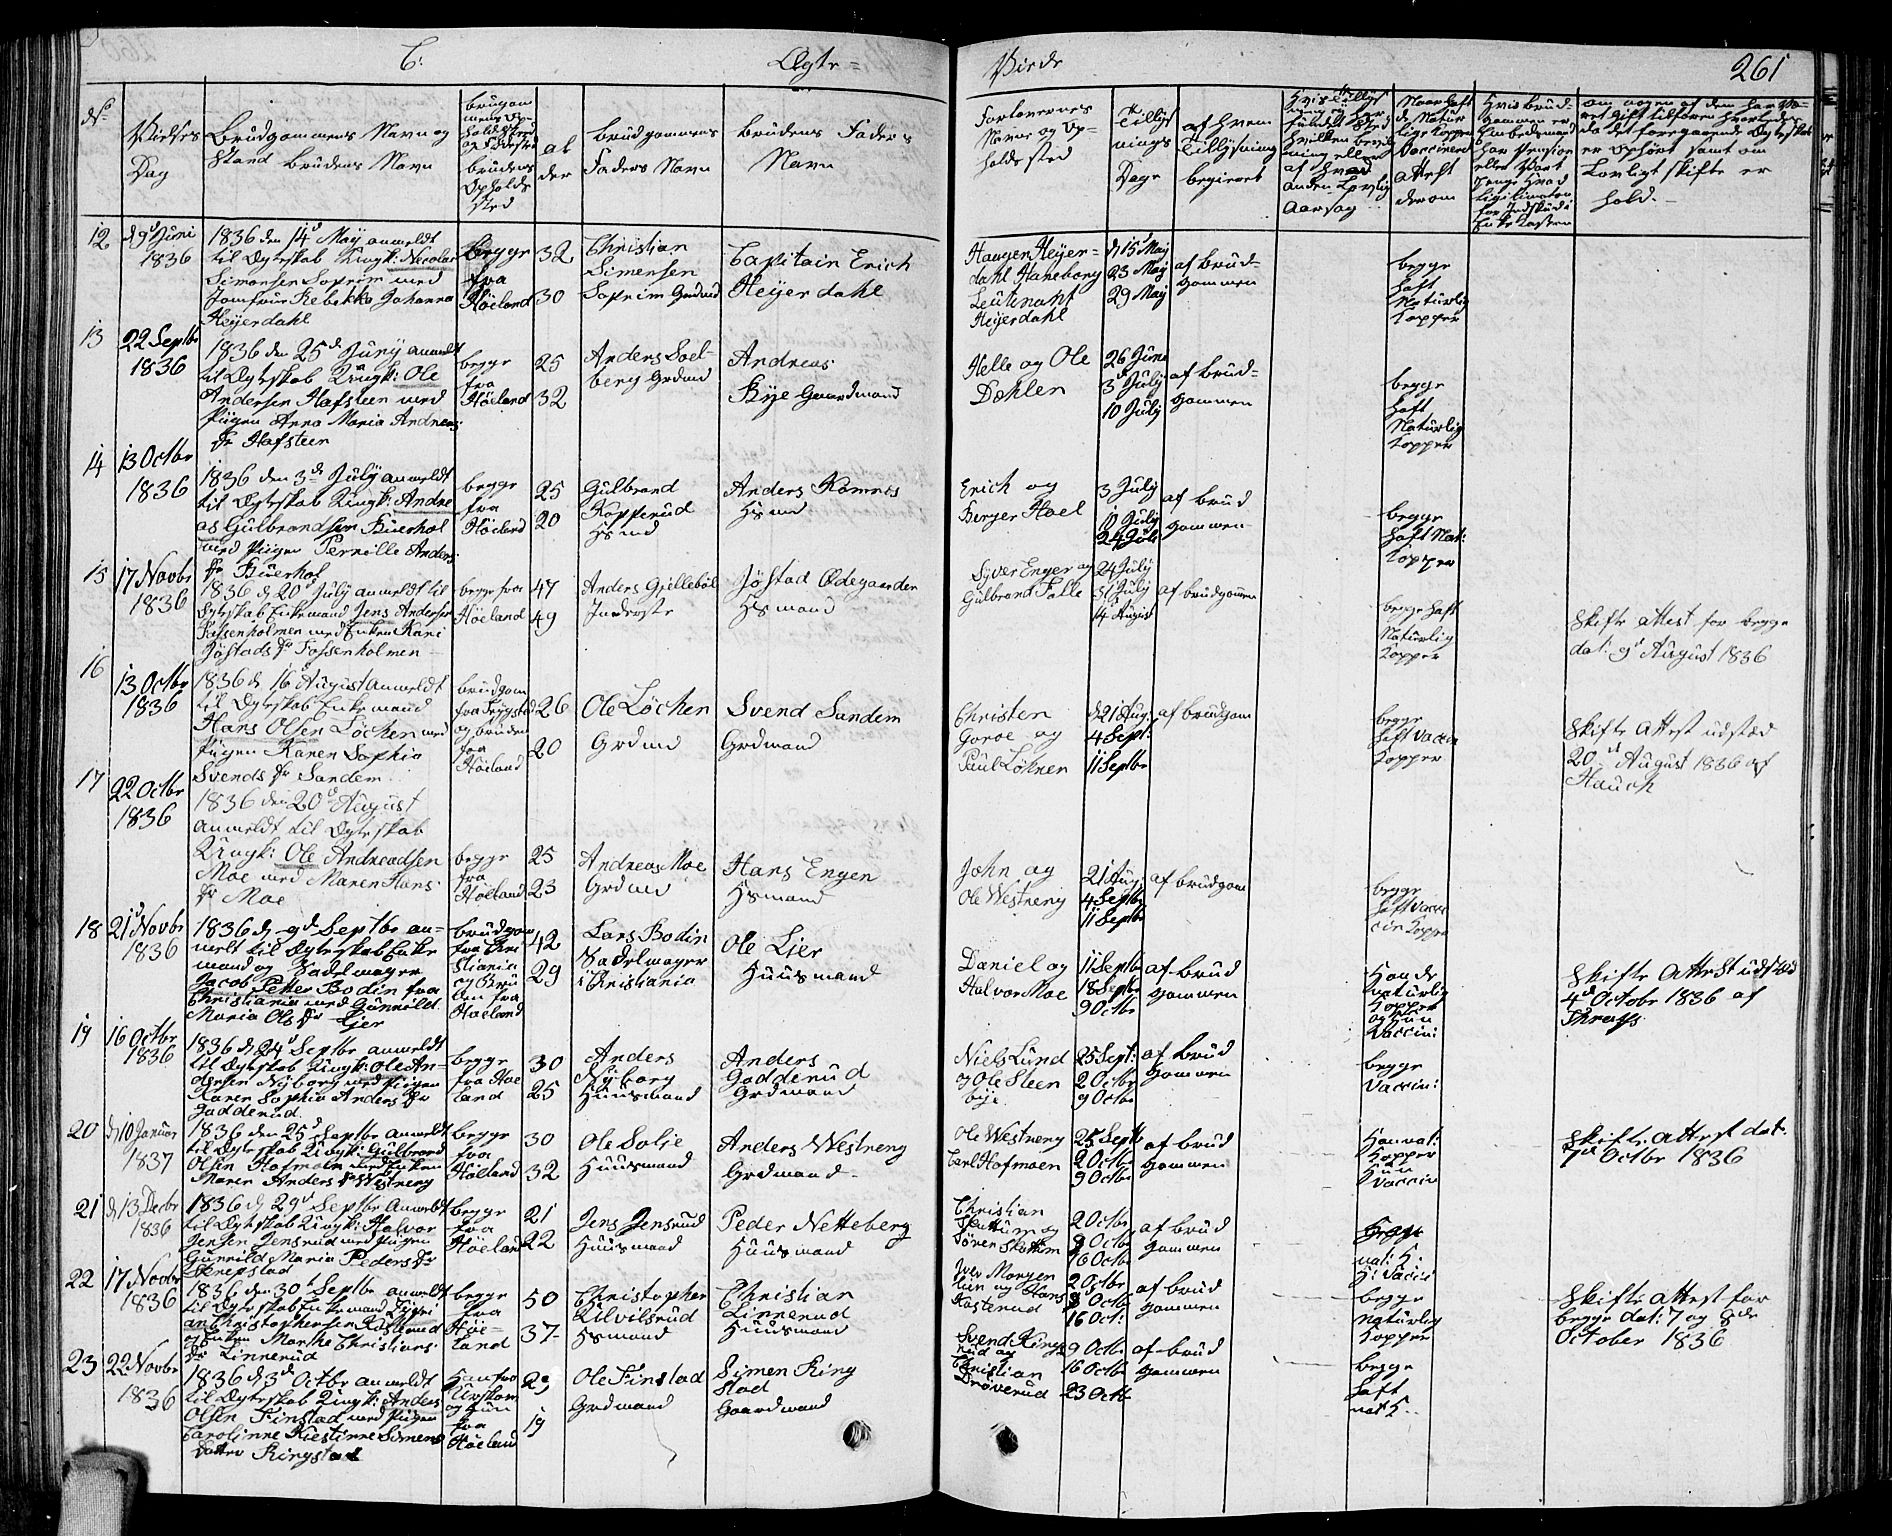 C:
Ægte=
Viede
261
No
Vielses
Dag
Brudgommens Navn og
Stand brudens Navn
al
der
brudgommens
Faders Navn
brudens Faders
Navn
Forlovernes
Navne og Op=
holdssted
Tillys
nings
Dage
af hvem
Tillysning
begieret
12
d 9d Juni
1836
1836 den 14d May anmeldt
til Ægteskab Ungk: Nicolai
Simensen Soprim med
Jomfrue Rebekka Johanna
Heyerdahl
begge
fra
Höeland
32
30
Christian
Simensen
Soprim Grdmd
Capitain Erich
Heyerdahl
Haneborg
Leutenant
Heyerdahl
d 15d May
23 May
29 May
af brud=
gommen
begge
haft
Naturlig
Kopper
13
22 Septbr
1836
1836 den 25d Juny anmeldt
til Ægteskab Ungk: Ole
Andersen Hafsteen med
Pigen Anna Maria Andreas
dr Hafsteen
begge
fra
Höeland
25
32
Anders Soel-
berg Grdmd
Andreas
Bye Gaardmand
Helle og Ole
Dahlen
26 Juni
3d July
10 July
af brud=
gommen
begge
haft
Naturlig
kopper
14
13 Octbr
1836
1836 den 3d July anmeldt
til Ægteskab Ungk: Andre
as Gulbrandsen Buerhol
med Pigen Pernille Anders
dr Buerhol
begge
fra
Höeland
25
20
Gulbrand
Kopperud
Hsmd
Anders Komnes
Hsmd
Erich og
Berger Hoel
3 July
10 July
24 July
af brud
gommen
begge
haft Nat:
Kopper
15
17 Novbr
1836
1836 d 20d July anmeldt til
Ægteskab Enkemand Jens Andersen
Fossenholmen med Enken Kari
Jöstads dr Fossenholmen
begge fra
Höeland
47
49
Anders Gjelleböl
Inderste
Jöstad Ødegaarden
Hsmand
Syver Enger og
Gulbrand Falle
24 July
31 July
14 August
af brudgommen
begge haft
Naturlig
Kopper
Skifte attest for begge
dat: 9d August 1836
16
13 Octbr
1836
1836 d 16 August anmeldt
til Ægteskab Enkemand
Hans Olsen Löchen med
Pigen Karen Sophia
Svends dr Sandem
brudgom
fra Trygstad
og bruden
fra
Höeland
26
20
Ole Löchen
Grdmd
Svend Sandem
Grdmand
Christen
Goroe og
Paul Löknen
d 21 Aug:
4 Sept:
11 Septbr
af brudgom
begge
haft vaccin
kopper
Skifte Attest udstæd
20d August 1836 af
Hauch
17
22 Octbr
1836
1836 den 20d August
anmeldt til Ægteskab
Ungk: Ole Andreassen
Moe med Maren Hans
dr Moe
begge
fra
Höeland
25
23
Andreas Moe
Grdmd
Hans Engen
Hsmand
John og
Ole Westreng
21 Aug
4 Septbr
11 Septbr
af brudgom
begge
haft vacci
cin Kopper
18
21d Novbr
1836
1836 d 9d Septbr an=
meldt til Ægteskab Enke
mand og Sadelmager
Jacob Petter Bodin fra
Christiania med Gunnild
Maria Ols dr Lier
brudgom
fra Chri
stiania
og bru
den fra
Höeland
42
29
Lars Bodin
Sadelmager
i Christiania
Ole Lier
Huusmand
Daniel og
Halvor Moe
11 Septbr
18 Septbr
9 Octbr
af brud
gommen
Han de
naturlig
Kopper
og hun
Vaccin:
Skifte Attest udstæd
4d Octobr 1836 af
19
16 Octbr
1836
1836 d 24d Septbr anmeldt
til Ægteskab Ungk: Ole An=
dersen Nyborg med Pigen
Karen Sophia Anders dr
Gadderud
begge
fra Höe
land
30
25
Anders
Nyborg
Huusmand
Anders
Gadderud
Grdmand
Niels Lund
og Ole Steen
bye
25 Sept:
2 Octbr
9 Octbr
af brud
gommen
begge
Vaccin:
20
d 10 Januar
1837
1836 den 25d Septbr anmeldt
til Ægteskab Ungk: Gulbrand
Olsen Hofmoen med Enken
Maren Anders dr Westreng
begge
fra
Höeland
30
32
Ole Solie
Huusmand
Anders Westreng
Grdmand
Ole Westreng
Carl Hofmoen
25 Septbr
2 Octbr
9 Octbr
af brud
gommen
Han nat:
Kopper
hun
vaccin
Skifte Attest dat:
7d Octbr 1836
21
d 13 Decbr
1836
1836 d 29d Septbr anmeldt
til Ægteskab Ungk: Halvor
Jensen Jensrud med Pigen
Gunnild Maria Peders dr
begge
fra
Höeland
21
22
Jens Jensrud
Huusmand
Peder Netteberg
Huusmand
Christian
Skattum og
Sören Skattum
2 Octbr
9 Octbr
16 Octbr
af brud
gommen
nat: K.
H: Vacci
22
17 Novbr
1836
1836 den 30t Septbr anmeldt
til Ægteskab Enkemand
Christophersen Kasterud
og Enken Marthe Christians
dr Linnerud
begge
fra
Höe=
land
50
37
Christopher
Ulvilsrud
Hsmand
Christian
Linnerud
Huusmand
og Hans
Kasterud
2 Octbr
9 Octb
16 Oct:
af brud
gommen
begge
naturlig
Kopper
Skifte Attest for
begge dat: 7 og 8de
October 1836
23
22 Novbr
1836
1836 d 3d Octbr anmeldt
til Ægteskab Ungk: Anders
Olsen Finstad med Pigen
Carolinne Kiestinne Simens
Datter Ringstad
Han fra
Urskow
og hun
fra
Höeland
29
19
Ole Finstad
Grdmand
Simen Ring
stad
Gaardmand
Svend Ring
rud og
Christian
Dröverud
9 Octbr
16 Octbr
23 Octb
af brud
gommen
begge
haft
nat K.